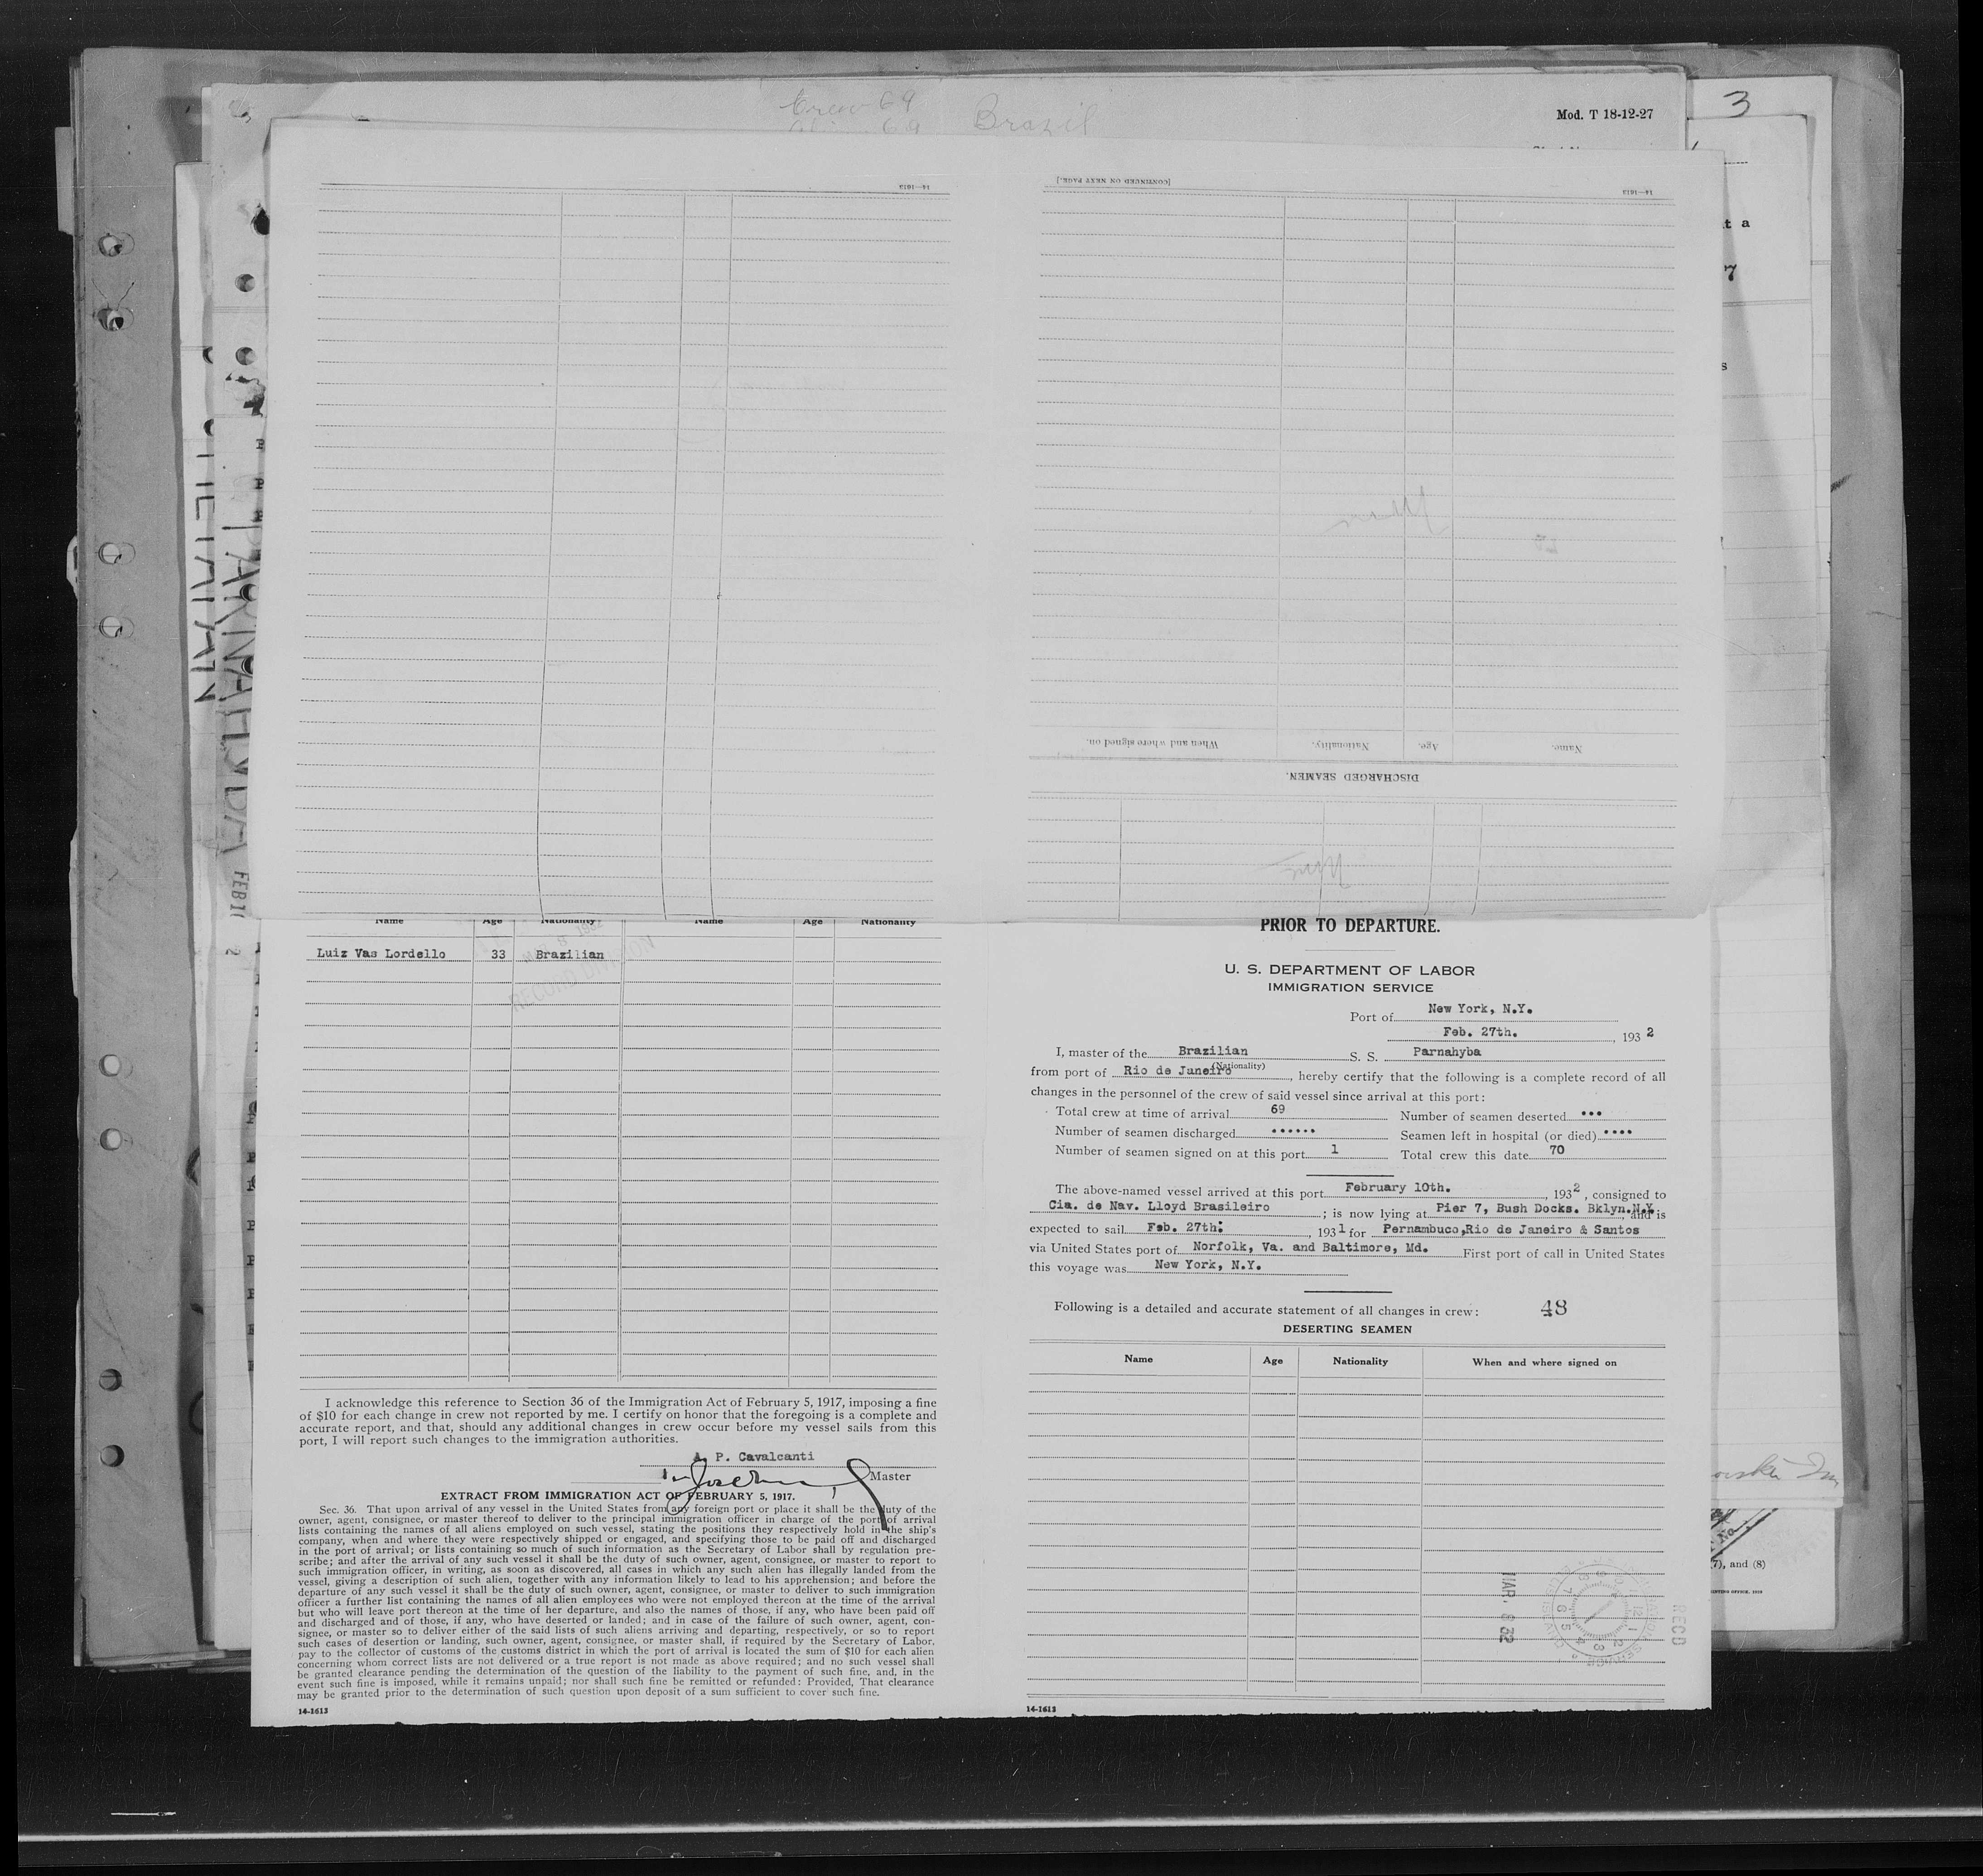 Crew 69
Brazil
Mod. T 18-12-27
3
t a
7
s
14—1613
[CONTINUED ON NEXT PAGE.]
14—1613
When and where signed on.
Nationality.
Age.
Name.
DISCHARGED SEAMEN.
None
PARNAHYBA
FEB 10
Name Age Nationality Name Age Nationality
Luiz Vas Lordello 33 Brazilian
RECORD DIVISION
I acknowledge this reference to Section 36 of the Immigration Act of February 5, 1917, imposing a fine
of $10 for each change in crew not reported by me. I certify on honor that the foregoing is a complete and
accurate report, and that, should any additional changes in crew occur before my vessel sails from this
port, I will report such changes to the immigration authorities.
A. P. Cavalcanti
Master
EXTRACT FROM IMMIGRATION ACT OF FEBRUARY 5, 1917.
Sec. 36. That upon arrival of any vessel in the United States from any foreign port or place it shall be the duty of the
owner, agent, consignee, or master thereof to deliver to the principal immigration officer in charge of the port of arrival
lists containing the names of all aliens employed on such vessel, stating the positions they respectively hold in the ship's
company, when and where they were respectively shipped or engaged, and specifying those to be paid off and discharged
in the port of arrival; or lists containing so much of such information as the Secretary of Labor shall by regulation pre-
scribe; and after the arrival of any such vessel it shall be the duty of such owner, agent, consignee, or master to report to
such immigration officer, in writing, as soon as discovered, all cases in which any such alien has illegally landed from the
vessel, giving a description of such alien, together with any information likely to lead to his apprehension; and before the
departure of any such vessel it shall be the duty of such owner, agent, consignee, or master to deliver to such immigration
officer a further list containing the names of all alien employees who were not employed thereon at the time of the arrival
but who will leave port thereon at the time of her departure, and also the names of those, if any, who have been paid off
and discharged and of those, if any, who have deserted or landed; and in case of the failure of such owner, agent, con-
signee, or master so to deliver either of the said lists of such aliens arriving and departing, respectively, or so to report
such cases of desertion or landing, such owner, agent, consignee, or master shall, if required by the Secretary of Labor,
pay to the collector of customs of the customs district in which the port of arrival is located the sum of $10 for each alien
concerning whom correct lists are not delivered or a true report is not made as above required; and no such vessel shall
be granted clearance pending the determination of the question of the liability to the payment of such fine, and, in the
event such fine is imposed, while it remains unpaid; nor shall such fine be remitted or refunded: Provided, That clearance
may be granted prior to the determination of such question upon deposit of a sum sufficient to cover such fine.
14-1613
PRIOR TO DEPARTURE.
U. S. DEPARTMENT OF LABOR
IMMIGRATION SERVICE
Port of New York, N.Y.
Feb. 27th. , 193 2
I, master of the Brazilian S. S. Parnahyba
(Nationality)
from port of Rio de Janeiro , hereby certify that the following is a complete record of all
changes in the personnel of the crew of said vessel since arrival at this port:
Total crew at time of arrival 69 Number of seamen deserted ...
Number of seamen discharged ...... Seamen left in hospital (or died) ....
Number of seamen signed on at this port 1 Total crew this date 70
The above-named vessel arrived at this port February 10th. , 193 2 , consigned to
Cia. de Nav. Lloyd Brasileiro ; is now lying at Pier 7, Bush Docks. Bklyn.N.Y. and is
expected to sail Feb. 27th: , 193 1 for Pernambuco,Rio de Janeiro & Santos
via United States port of Norfolk, Va. and Baltimore, Md. First port of call in United States
this voyage was New York, N.Y.
Following is a detailed and accurate statement of all changes in crew: 48
DESERTING SEAMEN
Name Age Nationality When and where signed on
MAR. 8 32
RECD
14-1613
7), and (8)